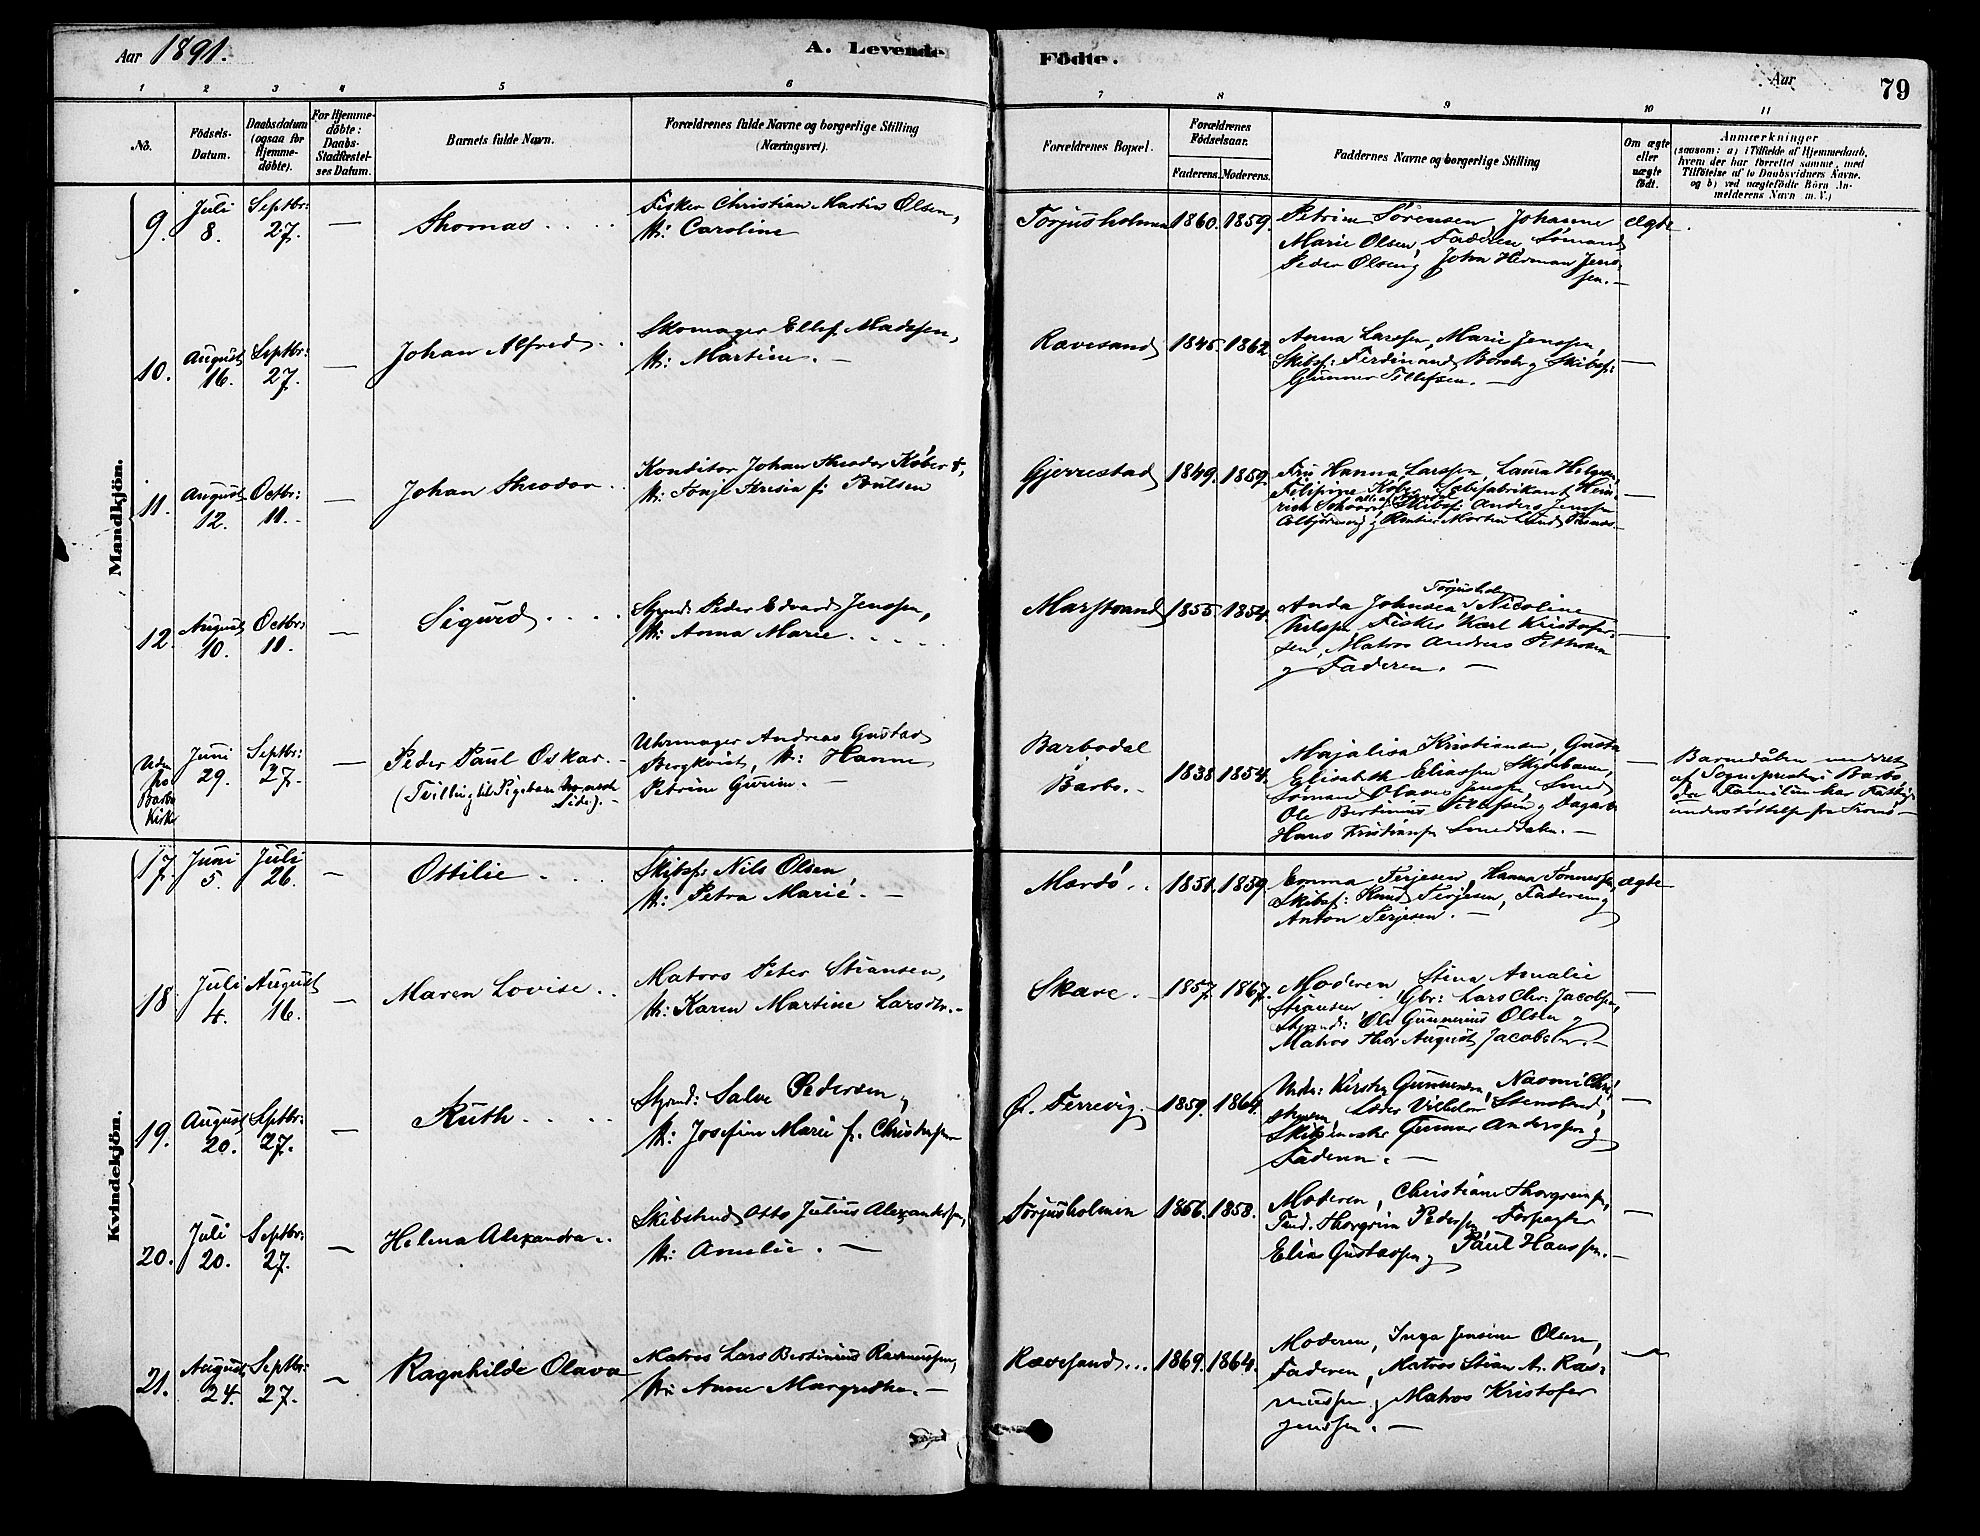 Aar 1891.
A. Levende Födte.
Aar
79
1 2 3 4 5 6 7 8 9 10 11
No.
Födsels-
Datum.
Daabsdatum
(ogsaa for
Hjemme-
döbte).
For Hjemme-
döbte:
Daabs-
Stadfæstel-
ses Datum.
Barnets fulde Navn.
Forældrenes fulde Navne og borgerlige Stilling
(Næringsvei).
Forældrenes Bopæl.
Forældrenes
Födselsaar.
Faderens. Moderens.
Faddernes Navne og borgerlige Stilling
Om ægte
eller
uægte
födt.
Anmærkninger
(saasom: a) i Tilfælde af Hjemmedaab,
hvem der har forrettet samme, med
Tilföielse af to Daabsvidners Navne.
og b) ved uægtefödte Börn An-
melderens Navn m. V.)
Mandkjön.
9. Juli 8. Septbr: 27. — Thomas
Fisker Christian Martin Olsen,
H: Caroline
Torjusholmen 1860. 1859.
Petrine Sörensen, Johanne
Marie Olsen, Faderen, Sömand
Peder Olsen og John Herman Jens-
sen. —
ægte
10. August 16. Septbr: 27. — Johan Alfred
Skomager Ellef Madssen,
H: Martine. —
Rævesand 1845. 1862
Anna Larssen, Marie Jenssen,
Skibsf: Ferdinand Borch og Skibsf:
Gunner Tellefsen. —
—
11. August 12. Octbr: 11. — Johan Theodor
Konditor Johan Theodor Köber †,
H: Tonje Teresia f: Poulsen
Gjerrestad 1849. 1859.
Fru Hanna Larssen, Laura Helgesen,
Filipine Köber, Sæbefabrikant Hein-
rich
Skibsf: Anders Jenssen
—
12. August 10. Octbr: 11. — Sigurd
Styrmd: Peder Edvard Jenssen,
H: Anna Marie
Marstrand 1855. 1854.
Torjusholm
Anda Johnsen, Nicoline
Nilsen, Fisker Karl Kristofer-
sen, Matros Andreas
og Faderen. —
—
Uden
fra
Barbu
Kirke
Juni 29. Septbr: 27. — Peder Paul Oskar. —
(Tvilling til Pigebarn No næste
Side). —
Uhrmager Andreas Gustav
Bergkvist, H: Hanne
Petrine Gurine. —
Barbodal
i
Barbo. —
1838 1854.
Majalisa Kristiansen, Gusta
Elisabeth Eliassen
Sömand Olaves Jenssen, Smed
Ole Bertinius Tellefsen og Dagarb:
Hans Kristiansen Smeddalen. —
—
Barnedåben meddelt
af Sognepresten i Barbo,
da Familien har Fattig-
understöttelse fra Tromö —
Kvindekjön.
17. Juni 5. Juli 26. — Ottilie
Skibsf: Nils Olsen
H: Petra Marie. —
Mærdö 1851. 1859.
Emma Terjesen, Hanna Tönnessen,
Skibsf: Knud Terjesen, Faderen og
Anton Terjesen. —
ægte
18. Juli 4. August 16. — Maren Lovise
Matros Peter Stiansen,
H: Karen Martine Larsdtr. —
Skare. — 1857. 1867.
Moderen, Stina Amalie
Stiansen, Gbr: Lars Chr. Jacobsen,
Styrmd: Ole Gunnerius Olsen og
Matros Thor August Jacobsen. —
—
19. August 20. Septbr: 27. — Ruth
Styrmd: Salve Pedersen,
H: Josefine Marie f. Christensen
Ö. Færrevig. 1859. 1864.
Kirsten Gunnersen, Naomi Chri-
stensen, Vilhelm Stensland,
Skibsmester Gunnar Anderssen og
Faderen. —
—
20. Juli 20. Septbr: 27. — Helena Alexandra
Skibstmd Otto Julius Alexandersen,
H: Amelie. —
Torjusholmen 1856. 1858.
Moderen, Christiane Thorgrimsen,
Tmd. Thorgrim Pedersen, Forpagter
Elias Gustavsen og Paul Hanssen. —
—
21. August 24. Septbr: 27. — Ragnhilde Olava
Matros Lars Bertinius Rasmussen,
H: Anne Margrethe. —
Rævesand 1869. 1864.
Moderen, Inga Jensine Olsen,
Faderen, Matros Stian A. Ras-
mussen og Matros Kristofer
Jenssen. —
—